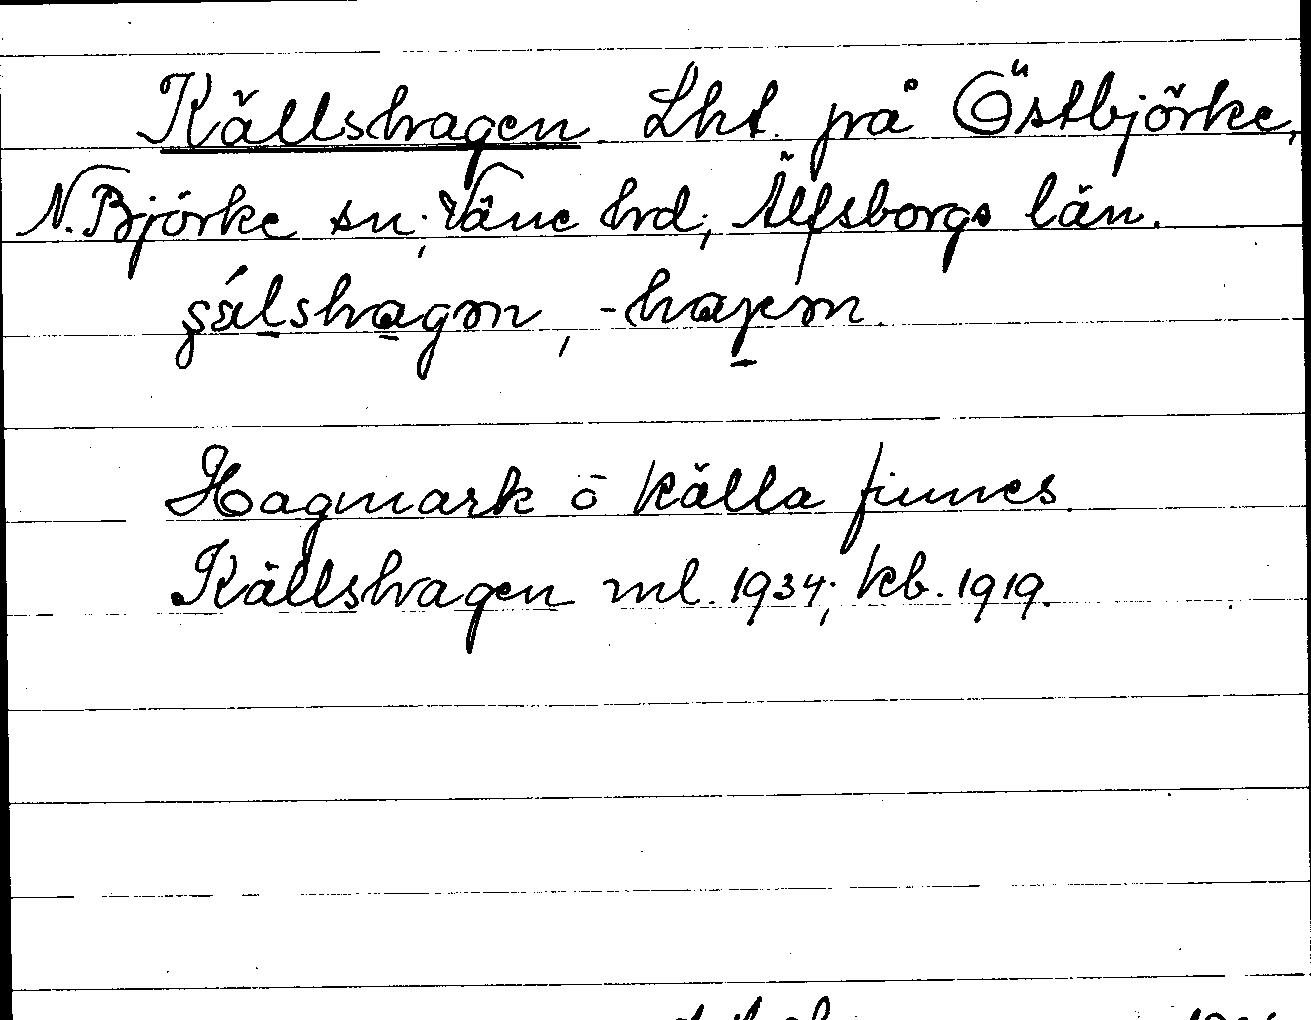 Källshagen Lht. på Östbjörke,
N. Björke sn; Väne hrd; Älfsborgs län.
-hagen
Hagmark o källa finnes.
Källshagen ml. 1934; kb. 1919.